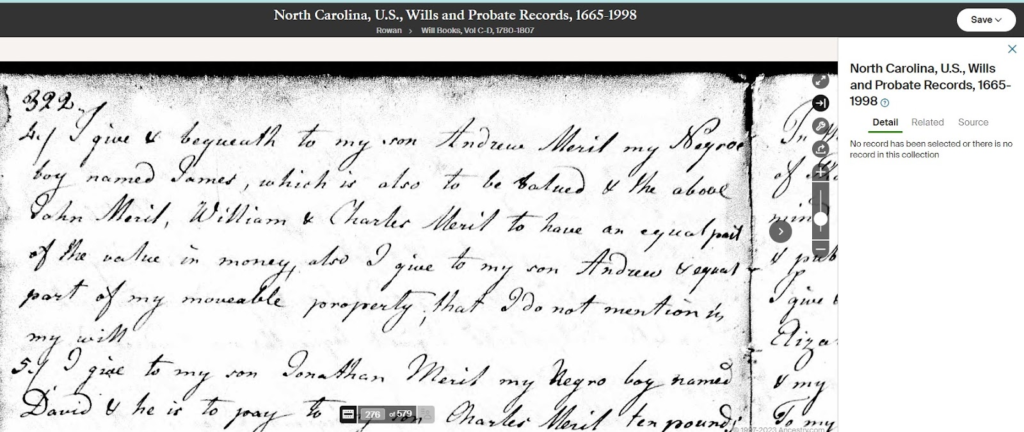 North Carolina, U.S., Wills and Probate Records, 1665-1998
Rowan > Will Books, Vol C-D, 1780-1807
Save
322
4. I give & bequeath to my son Andrew Meril my Negroe
boy named James, which is also to be valued & the above
John Meril, William & Charles Meril to have an equal part
of the value in money, also I give to my son Andrew & equal
part of my moveable property, that I do not mention in
my will
5. I give to my son Jonathan Meril my Negro boy named
David & he is to pay to my son Charles Meril ten pounds
In
of
& pub
I give
Eliza
& my
To my
276 of 579
© 1997-2023 Ancestry.com
North Carolina, U.S., Wills
and Probate Records, 1665-
1998
Detail Related Source
No record has been selected or there is no
record in this collection